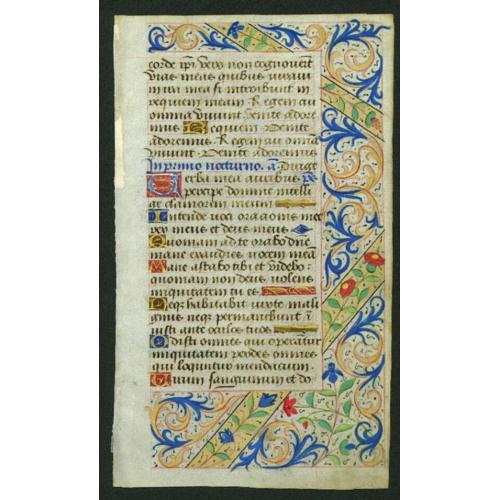 corde ipi vero non cognoverūt
vias meas quibus iuravi
in ira mea si introibunt in
requiem meam R egem cui
omnia vivunt venite adore
mus Requiem Venite
adoremus R egem cui omnia
vivunt Venite adoremus
In primo nocturno. a. Dirige
Verba mea auribus ps
percipe domine intelli
ge clamorem meum
Intende voci orationis mee
rex meus et deus meus
Quoniam ad te orabo dne
mane exaudies vocem meā
Mane astabo tibi et videbo:
quoniam non deus volens
iniquitatem tu es
Neqz habitabit iuxte mali
gnus neqz permanebunt i
iusti ante oculos tuos
Odisti omnes qui operātur
iniquitatem perdes omnes
qui loquntur mendacium
Virum sanguinum et do